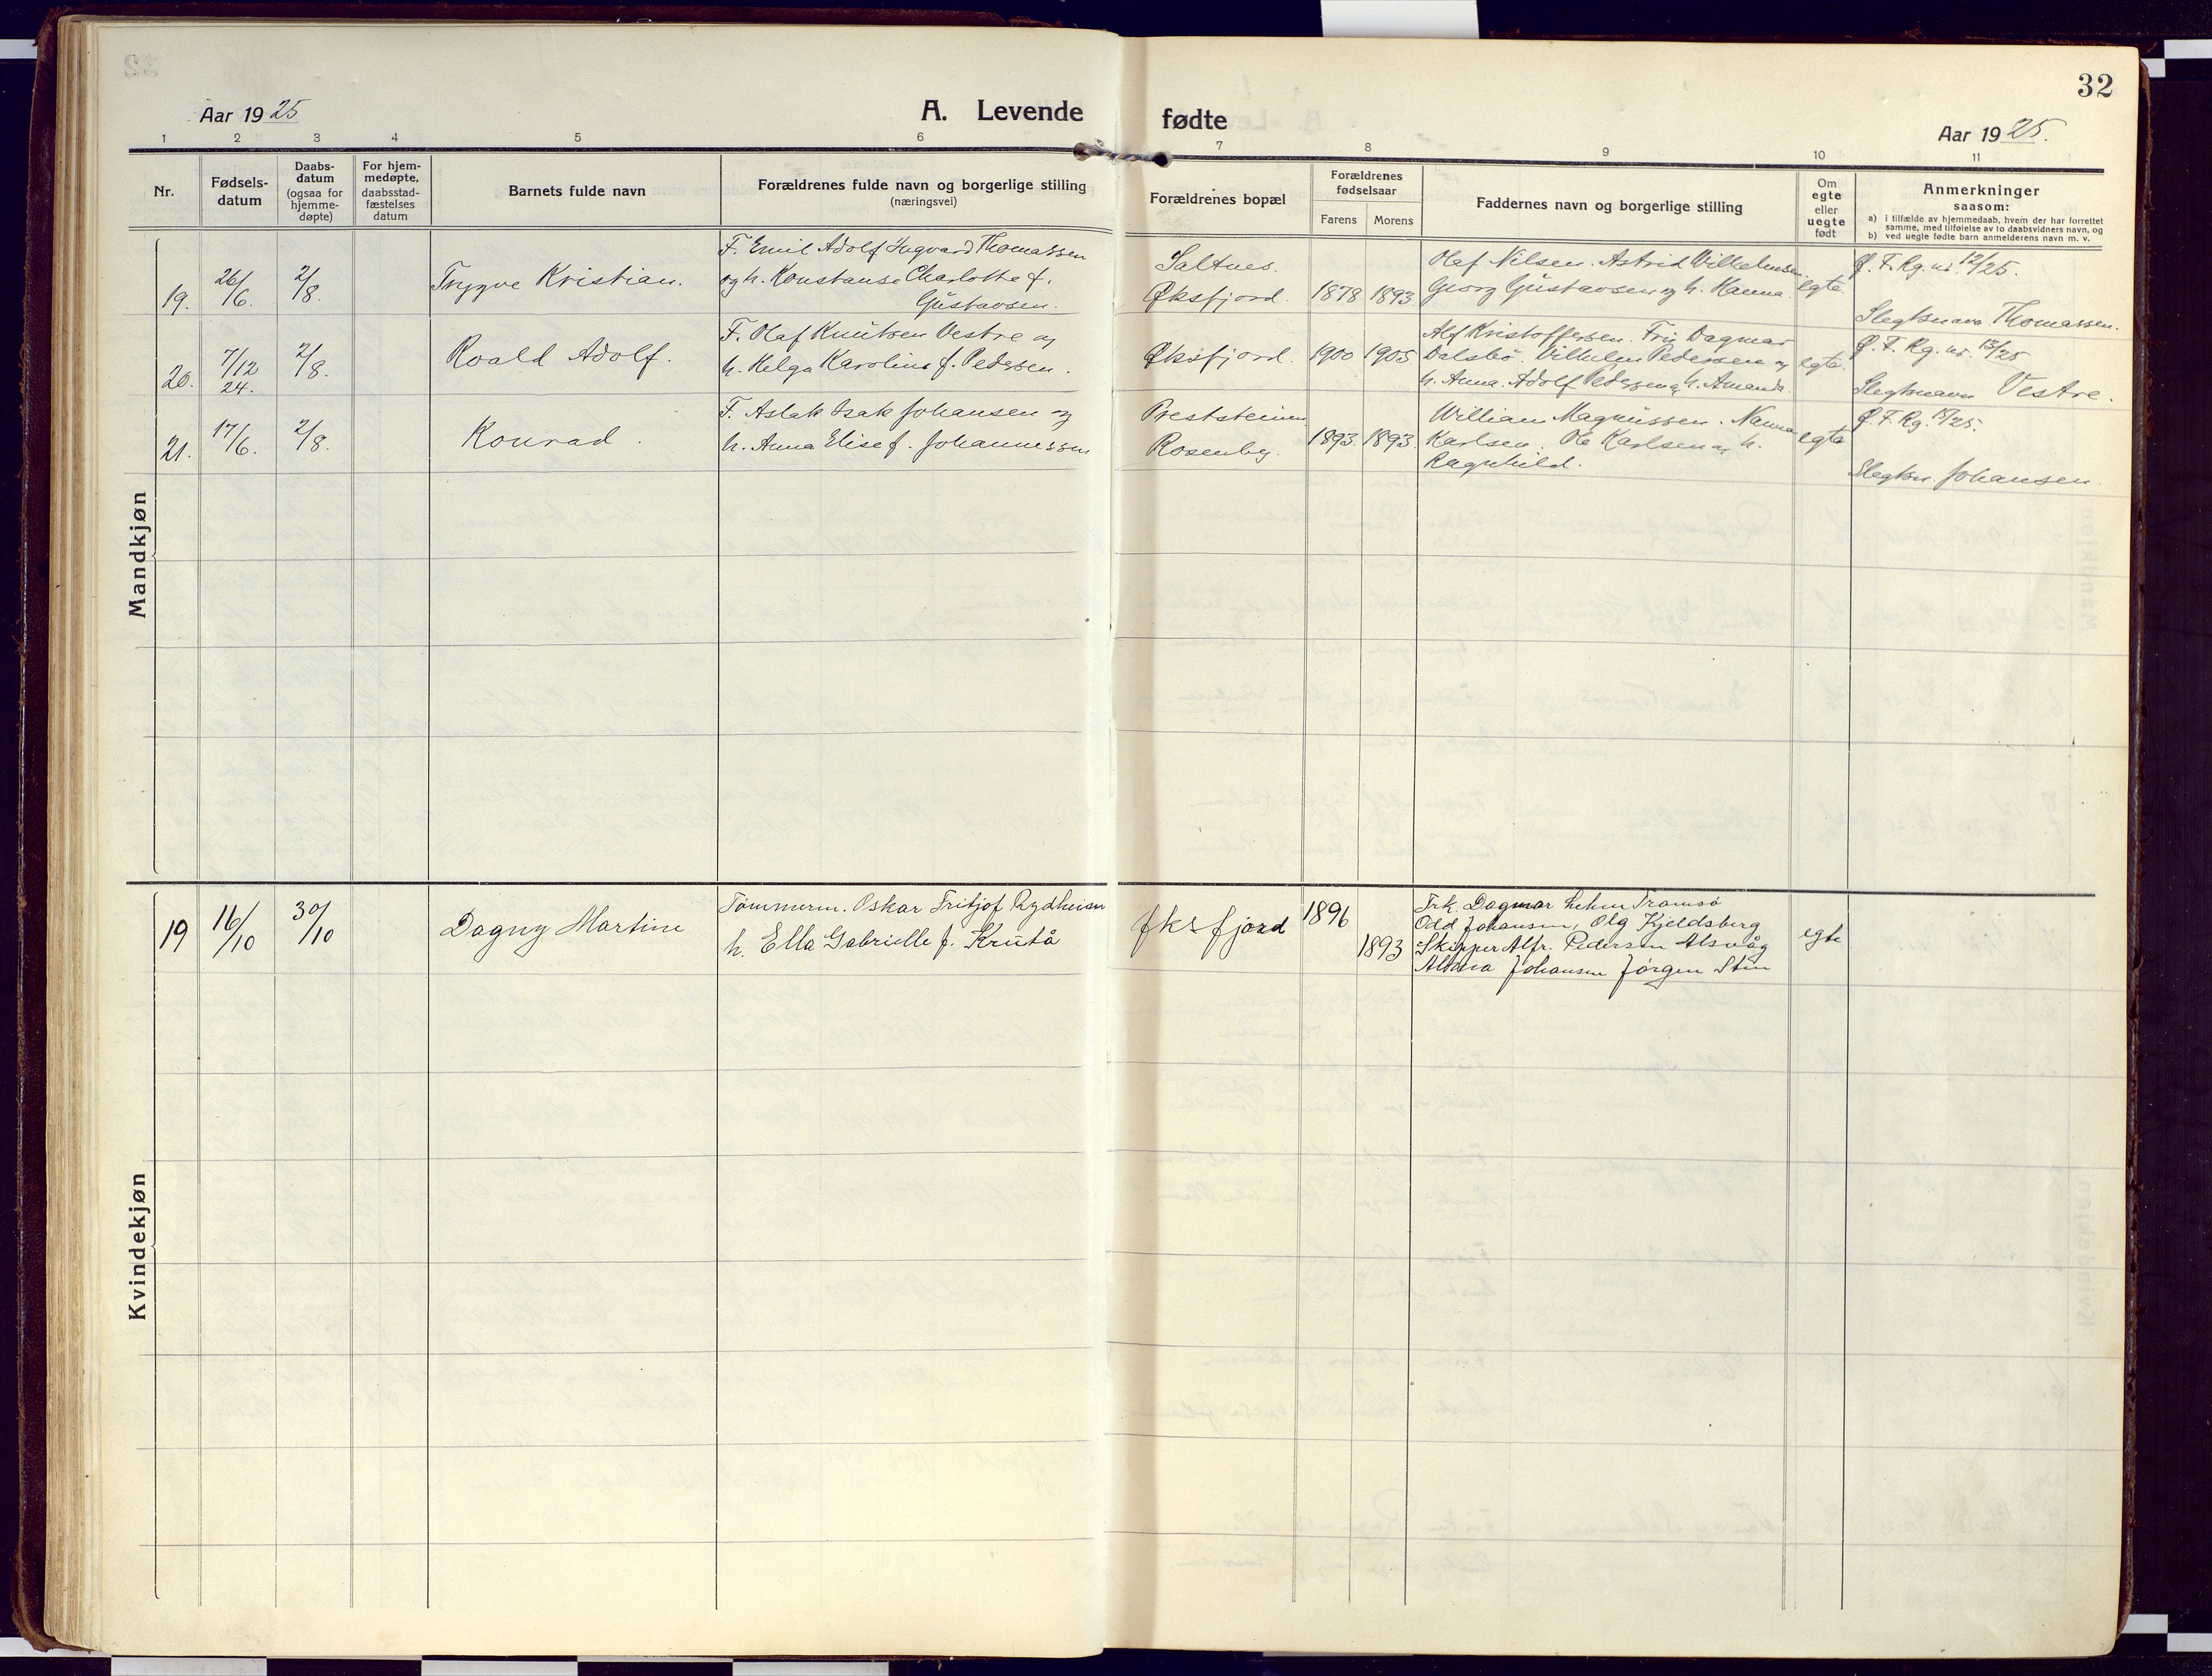 32
Aar 1925
A. Levende
fødte
Aar 1925.
1 2 3 4 5 6 7 8 9 10 11
Nr.
Fødsels-
datum
Daabs-
datum
(ogsaa for
hjemme-
døpte)
For hjem-
medøpte,
daabsstad-
fæstelses
datum
Barnets fulde navn
Forældrenes fulde navn og borgerlige stilling
(næringsvei)
Forældrenes bopæl
Forældrenes
fødselsaar
Farens Morens
Faddernes navn og borgerlige stilling
Om
egte
eller
uegte
født
Anmerkninger
saasom:
a) i tilfælde av hjemmedaab, hvem der har forrettet
samme, med tilføielse av to daabsvidners navn, og
b) ved uegte fødte barn anmelderens navn m. v.
Mandkjøn
19. 26/6. 2/8. Trygve Kristian.
F. Emil Adolf Ingvard Thomassen
og h. Konstanse Charlotte f.
Gustavsen.
Saltnes.
Øksfjord. 1878 1893
Olaf Nilsen. Astrid Vilhelmsen.
Georg Gustavsen og h. Hanna.
egte.
Ø. F. Rg. nr. 12/25.
Slegtsnavn Thomassen.
20. 7/12 24. 2/8. Roald Adolf.
F. Olaf Knutsen Vestre og
h. Helga Karoline f. Pedersen.
Øksfjord. 1900 1905
Alf Kristoffersen. Fru Dagmar
Dalsbö. Vilhelm Pedersen og
h. Anna. Adolf Pedersen og h. Amanda.
egte.
Ø. F. Rg. nr. 13/25
Slegtsnavn Vestre.
21. 17/6. 2/8. Konrad.
F. Aslak Isak Johansen og
h. Anna Elise f. Johannessen
Preststeinen
Rosenby. 1893. 1893
William Magnussen. Nanna
Karlsen. Ole Karlsen og h.
Ragnhild.
egte
Ø. F. Rg. 15/25.
Slegtsn. Johansen.
Kvindekjøn
19 16/10 30/10 Dagny Martine
Tømmerm. Oskar Fritjof Rydheim
h. Ella Gabrielle f. Krutå
Øksfjord 1896
1893
Frk. Dagmar Lehn Tromsö
Odd Johansen, Olg Kjeldsberg
Skipper Alfr. Pedersen Alsvåg
Johansen Jørgen
egte